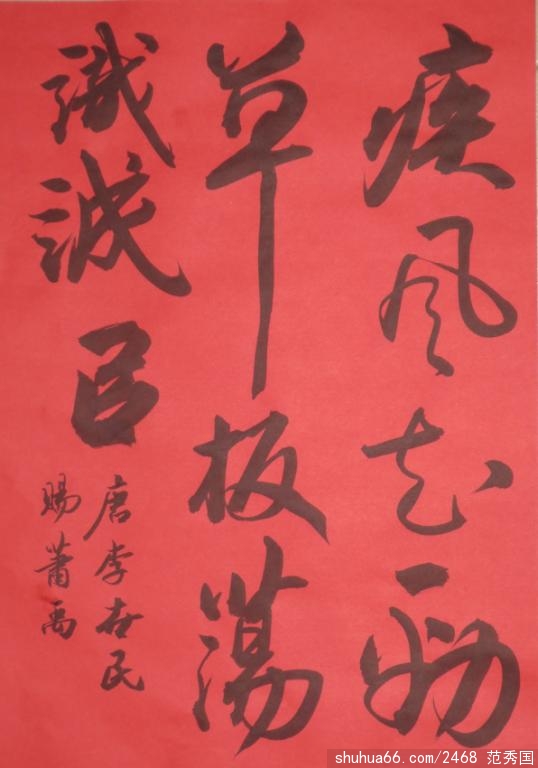 疾风知劲
草板荡
识诚臣
唐李世民
赐萧禹
shuhua66.com/2468 范秀国